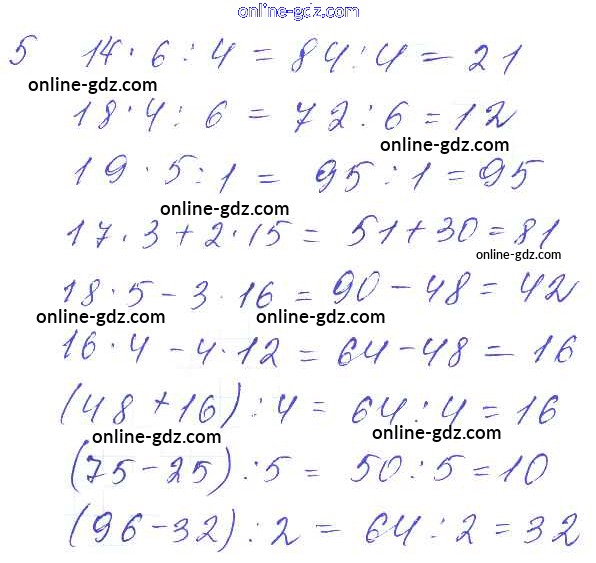 online-gdz.com
5 14 · 6 : 4 = 84 : 4 = 21
online-gdz.com
18 · 4 : 6 = 72 : 6 = 12
online-gdz.com
19 · 5 : 1 = 95 : 1 = 95
online-gdz.com
17 · 3 + 2 · 15 = 51 + 30 = 81
online-gdz.com
18 · 5 - 3 · 16 = 90 - 48 = 42
online-gdz.com online-gdz.com
16 · 4 - 4 · 12 = 64 - 48 = 16
(48 + 16) : 4 = 64 : 4 = 16
online-gdz.com online-gdz.com
(75 - 25) : 5 = 50 : 5 = 10
(96 - 32) : 2 = 64 : 2 = 32